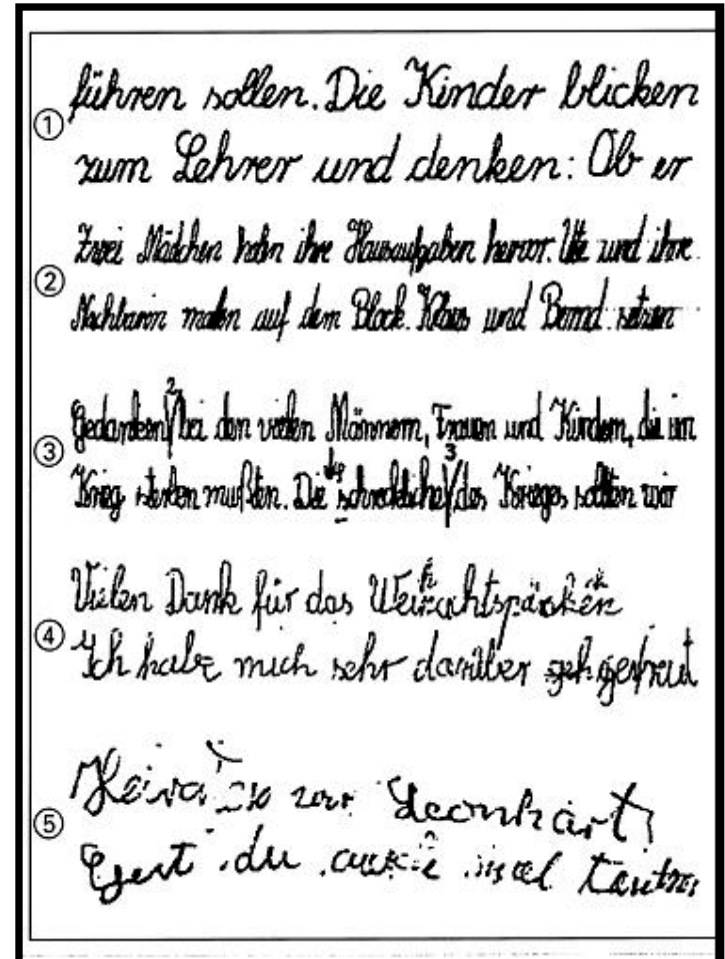 ① führen sollen. Die Kinder blicken
zum Lehrer und denken: Ob er
② Zwei Mädchen holen ihre Hausaufgaben hervor. Ute und ihre
Nachbarin malen auf dem Block. Klaus und Bernd setzen
③ Gedanken 2 bei den vielen Männern, Frauen und Kindern, die im
Krieg sterben mußten. Die schreckliche 3 des Krieges sollten wir
④ Vielen Dank für das
Ich habe mich sehr darüber gefreut
⑤ Leonhart
du mal